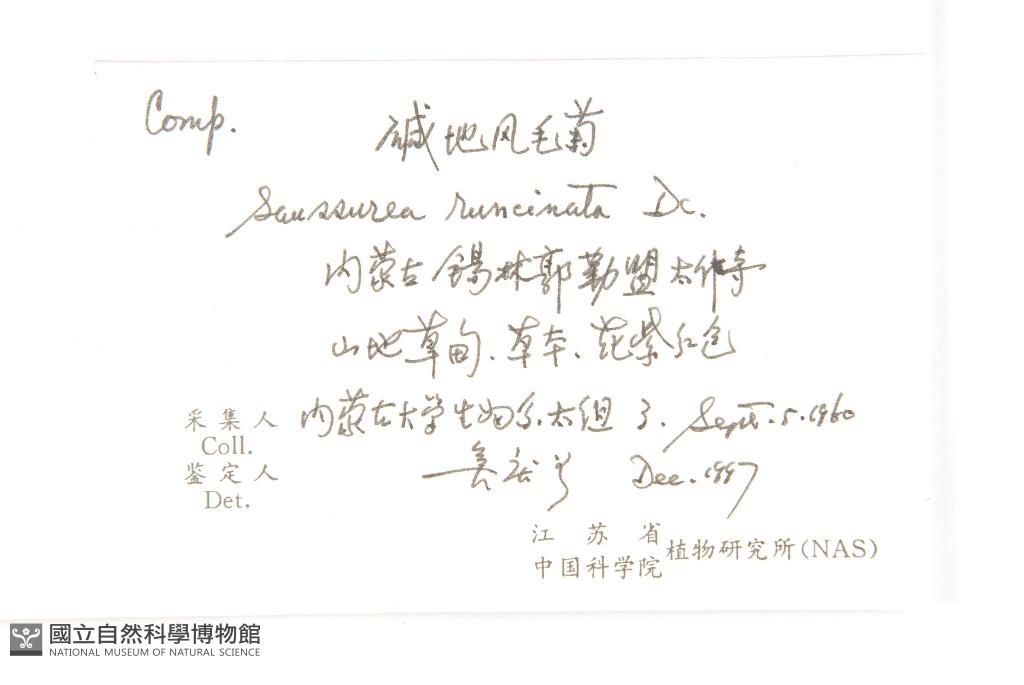 Comp. 碱地风毛菊
Saussurea runcinata Dc.
内蒙古锡林郭勒盟太仆寺
山地草甸、草本、花紫红色
采集人 内蒙古大学生物系太组 3. Sept. 5. 1960
Coll.
鉴定人 Dec. 1997
Det.
江苏省
中国科学院 植物研究所(NAS)
國立自然科學博物館
NATIONAL MUSEUM OF NATURAL SCIENCE